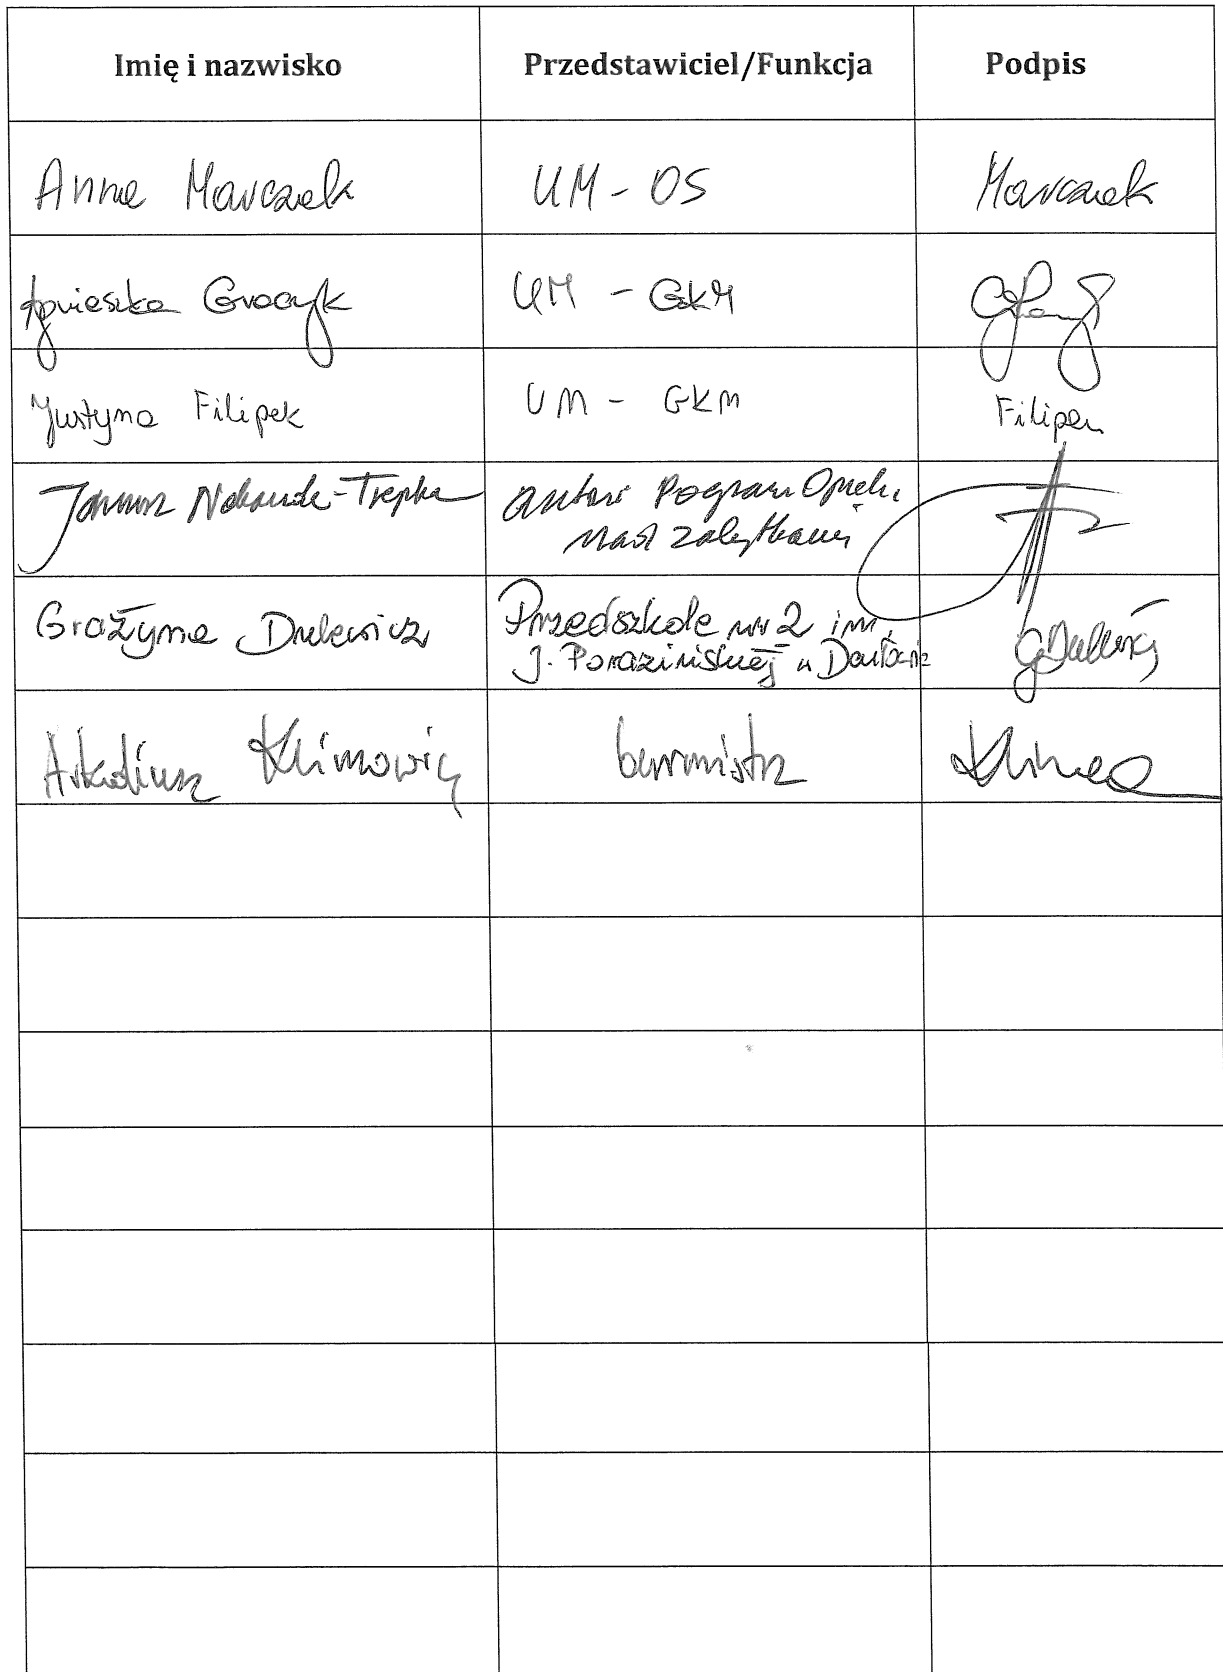 Imię i nazwisko Przedstawiciel/Funkcja Podpis
Anna Marczak UM - OS Marczak
Agnieszka UM - GKM
Justyna Filipek UM - GKM Filipek
Janusz Nekanda-Trepka autor Program Opieki
nad zabytkami
Grażyna Dulewicz Przedszkole nr 2 im.
J. Porazińskiej w Darłowie GDulewicz
Arkadiusz Klimowicz burmistrz